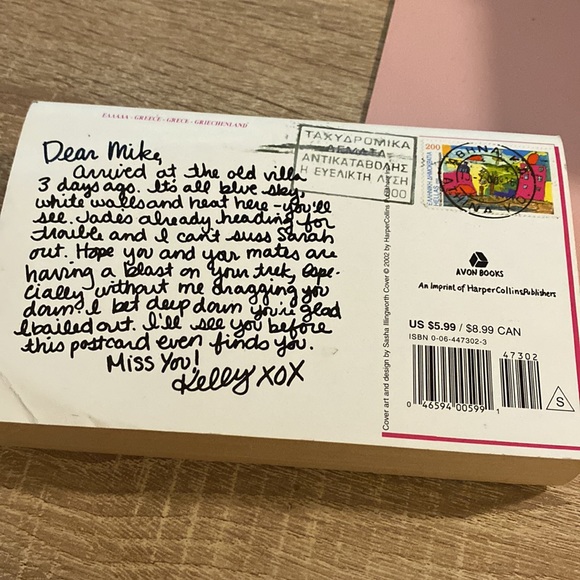 ΕΛΛΑΔΑ - GREECE - GRECE - GRIECHENLAND
Dear Mike,
Arrived at the old villa
3 days ago. Its all blue sky,
white walls and heat here - you'll
see. Jade's already heading for
trouble and I can't suss Sarah
out. Hope you and your mates are
having a blast on your trek, espe-
cially without me dragging you
down. I bet deep down you're glad
I bailed out. I'll see you before
this postcard even finds you.
Miss You!
Kelly XOX
ΤΑΧΥΔΡΟΜΙΚΑ
ΔΕΜΑΤΑ
ΑΝΤΙΚΑΤΑΒΟΛΗΣ
Η ΕΥΕΛΙΚΤΗ ΛΥΣΗ
200
ΕΛΛΗΝΙΚΗ ΔΗΜΟΚΡΑΤΙΑ
HELLAS
AVON BOOKS
An Imprint of HarperCollinsPublishers
US $5.99 / $8.99 CAN
ISBN 0-06-447302-3
47302
0 46594 00599 1
S
Cover art and design by Sasha Illingworth Cover © 2002 by HarperCollins